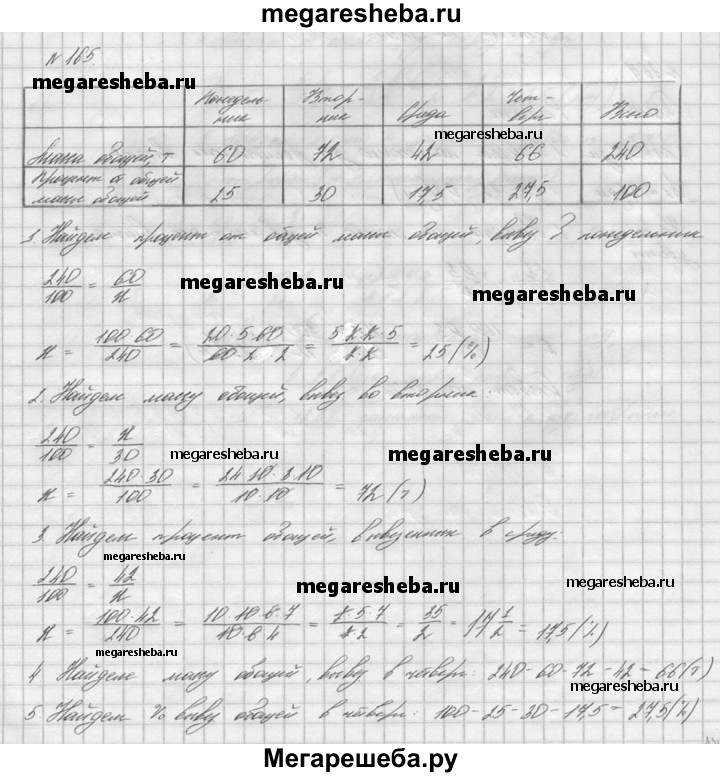 megaresheba.ru
N 165.
megaresheba.ru
Понедель- Втор- Чет-
ник ник Среда верг Всего
megaresheba.ru
Масса овощей, т 60 72 42 66 240
Процент от общей
массы овощей 25 30 17,5 27,5 100
1. Найдем процент от общей массы овощей, вывез. в понедельник
240/100 = 60/x
megaresheba.ru
megaresheba.ru
x = 100·60/240 = 20·5·60/60·2·2 = 5·2·2·5/2·2 = 25 (%)
2. Найдем массу овощей, вывез. во вторник:
240/100 = x/30
megaresheba.ru
megaresheba.ru
x = 240·30/100 = 24·10·3·10/10·10 = 72 (т)
3. Найдем процент овощей, вывезенных в среду:
megaresheba.ru
240/100 = 42/x
megaresheba.ru
megaresheba.ru
x = 100·42/240 = 10·10·6·7/10·6·4 = 2·5·7/2·2 = 35/2 = 17 1/2 = 17,5 (%)
megaresheba.ru
4. Найдем массу овощей, вывез. в четверг: 240-60-72-42=66 (т)
megaresheba.ru
megaresheba.ru
5. Найдем % вывез. овощей в четверг: 100-25-30-17,5=27,5 (%)
Мегарешеба.ру